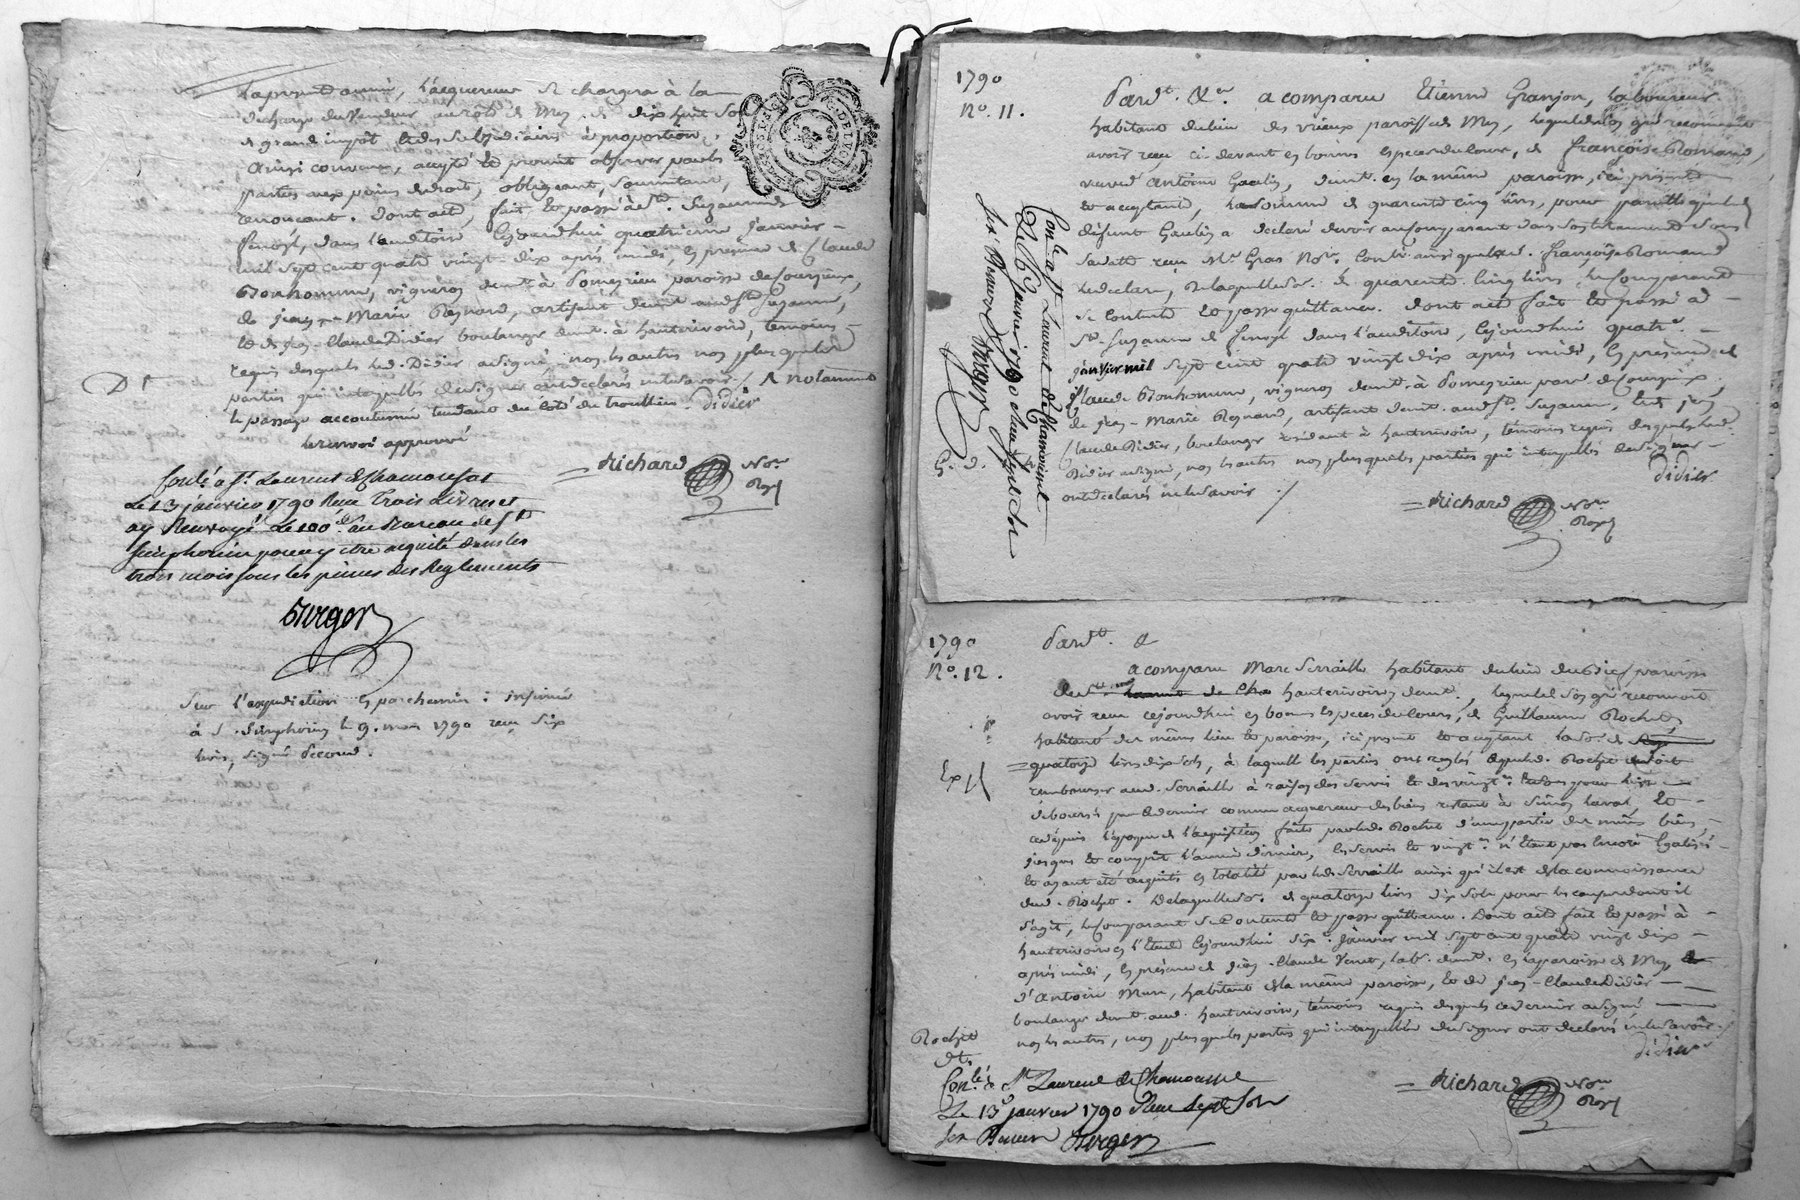 la presente année, l'acquereur se chargera à la
decharge du vendeur au rôle de Mey de dix huit sols
de grand impôt et des subsidiaires à proportion,
Ainsi convenu, accepté et promis observer par les
parties aux peines de droit, obligeant, soumettant,
renonçant. dont acte, fait et passé à Ste. Suzanne de
fenoyl, dans l'auditoire, cejourdhui quatrieme janvier
mil sept cent quatre vingt dix après midi, en présence de Claude
Bonhomme, vigneron demt. à Pomeyrieu paroisse de Courzieux,
de jean-Marie Reynard, artisant demt. aud. Ste. Suzanne,
et de jean-Claude Didier boulanger demt. à hauterivoire, témoins
requis desquels led. Didier a signé, nos les autres non plus que les
parties qui interpellés de signer ont declarés ne le savoir ./. & notament
le passage accoutumé tendant du coté du trouillieu. didier
le renvoi approuvé
Richard Nore
Royl
Conlé a St. Laurent de Chamousset
Le 13 janvier 1790 Reçu Trois Livres et
ay Renvoyé Le 100e. au Bureau de St.
Simphorien pour y etre acquité dans les
trois mois sous les peines des Reglements
Burger
Sur l'expedition en parchemin : insinué
à S. Simphorien le 9. mars 1790 reçu six
livres, signé Second.
1790
No. 11.
Pardt. &a. a comparu Etienne Granjon, laboureur
habitant du lieu des vrieux paroisse de Mey, lequel de son gré reconnoit
avoir reçu ci-devant en bonnes especes du cours, de françoise Romand,
veuve d'Antoine Gaulin, demt. en la même paroisse, ici présente
et acceptant, la somme de quarante cinq livres, pour pareille que led.
défunt Gaulin a declaré devoir au comparant dans son testament sous
sa date reçu Me. Gras Nore. Contlé ainsi que lad. françoise Romand
le declare; de laquelle so. de quarante cinq livres, le comparant
se contente et passe quittance. dont acte fait et passé à
Ste. Suzanne de fenoyl dans l'auditoire, cejourdhui quatre.
janvier mil sept cent quatre vingt dix après midi, en présence de
Claude Bonhomme, vigneron demt. à Pomeyrieu parr. de Courzieux,
de jean-Marie Reynard, artisant demt. aud. St. Suzanne, et de jean
Claude Didier, boulanger résidant à hauterivoire, témoins requis desquels led.
Didier a signé, nos les autres non plus que les parties qui interpellés de signer
ont declarés ne le savoir ./. didier
Richard Nore
Royl
Conlé a St. Laurent de Chamousset
Le 13 janvier 1790 Reçu Sept Sols
Burger
1790
No. 12.
Pardt. &
a comparu Marc Serraille habitant du lieu du paroisse
hauterivoire demt., lequel de son gré reconnoit
avoir reçu cejourdhui en bonnes especes du cours, de Guillaume Rochet
habitant du même lieu et paroisse, ici present et acceptant la so. de
quatorze livres dix sols, à laquelle les parties ont reglés ce que led. Rochet devoit
rembourser aud. Serraille à raison des servis et des vingt.es
déboursés par ce dernier comme acquereur des biens restant à Simon Laval, et
ce depuis l'époque de l'acquisition faite par led. Rochet d'une partie des mêmes biens,
jusques et compris l'année derniere, les servis et vingt.es n'étant pas encore égalisés
et ayant été acquités en totalité par led. Serraille ainsi qu'il est de la connoissance
dud. Rochet. De laquelle so. de quatorze livres dix sols pour les causes dont il
s'agit, le comparant se contente et passe quittance. Dont acte fait et passé à
hauterivoire en l'Etude cejourdhui six. janvier mil sept cent quatre vingt dix
après midi, en présence de jean-Claude Venet, lab. demt. en la paroisse de Mey,
d'Antoine Mure, habitant de la même paroisse, et de jean-Claude Didier
boulanger demt. aud. hauterivoire, témoins requis desquels ce dernier a signé
nos les autres, non plus que les parties qui interpellés de signer ont declarés ne le savoir ./.
didier
Rochet
Richard Nore
Royl
Conlé a St. Laurent de Chamousset
Le 13 janvier 1790 Reçu Sept Sols
Burger